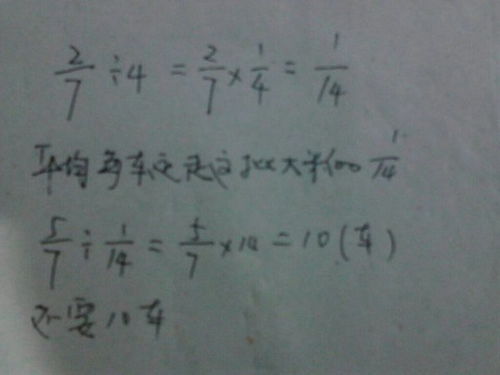 2/7 ÷ 4 = 2/7 × 1/4 = 1/14
平均每车运走这批大米的 1/14
5/7 ÷ 1/14 = 5/7 × 14 = 10 (车)
还需要10车